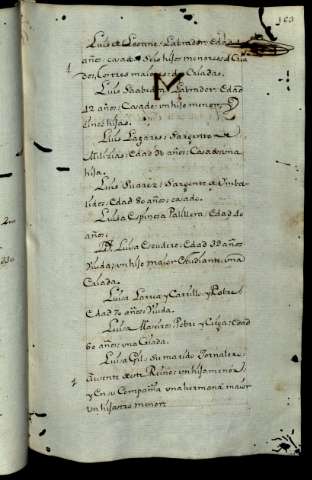 103
Luis el Leonne: Labrador: Edad
años: casado: Seis hijos menores: 4 Cria
dos, los tres maiores: dos Criadas.
Luis Saabedra: Labrador: Edad
42 años: Casado: un hijo menor: 2
cinco hijas.
Luis Lagares: Sargento de
Milicias: Edad 36 años: Casado: una
hija.
Luis Suarez: Sargento de Imba-
lidos: Edad 80 años: casado.
Luisa Espinosa Palillera: Edad 40
años.
Dª Luisa Escudero: Edad 39 años
Viuda: un hijo maior Estudiante, una
Criada.
Luisa Lorca y Carrillo y Pobre:
Edad 70 años: Viuda.
Luisa Maseros: Pobre y Ciega: Edad
60 años: una Criada.
Luisa Gil: su marido Jornalero:
Ausente de este Reino: un hijo menor
y en su Compañia una hermana maior
un hijastro menor: